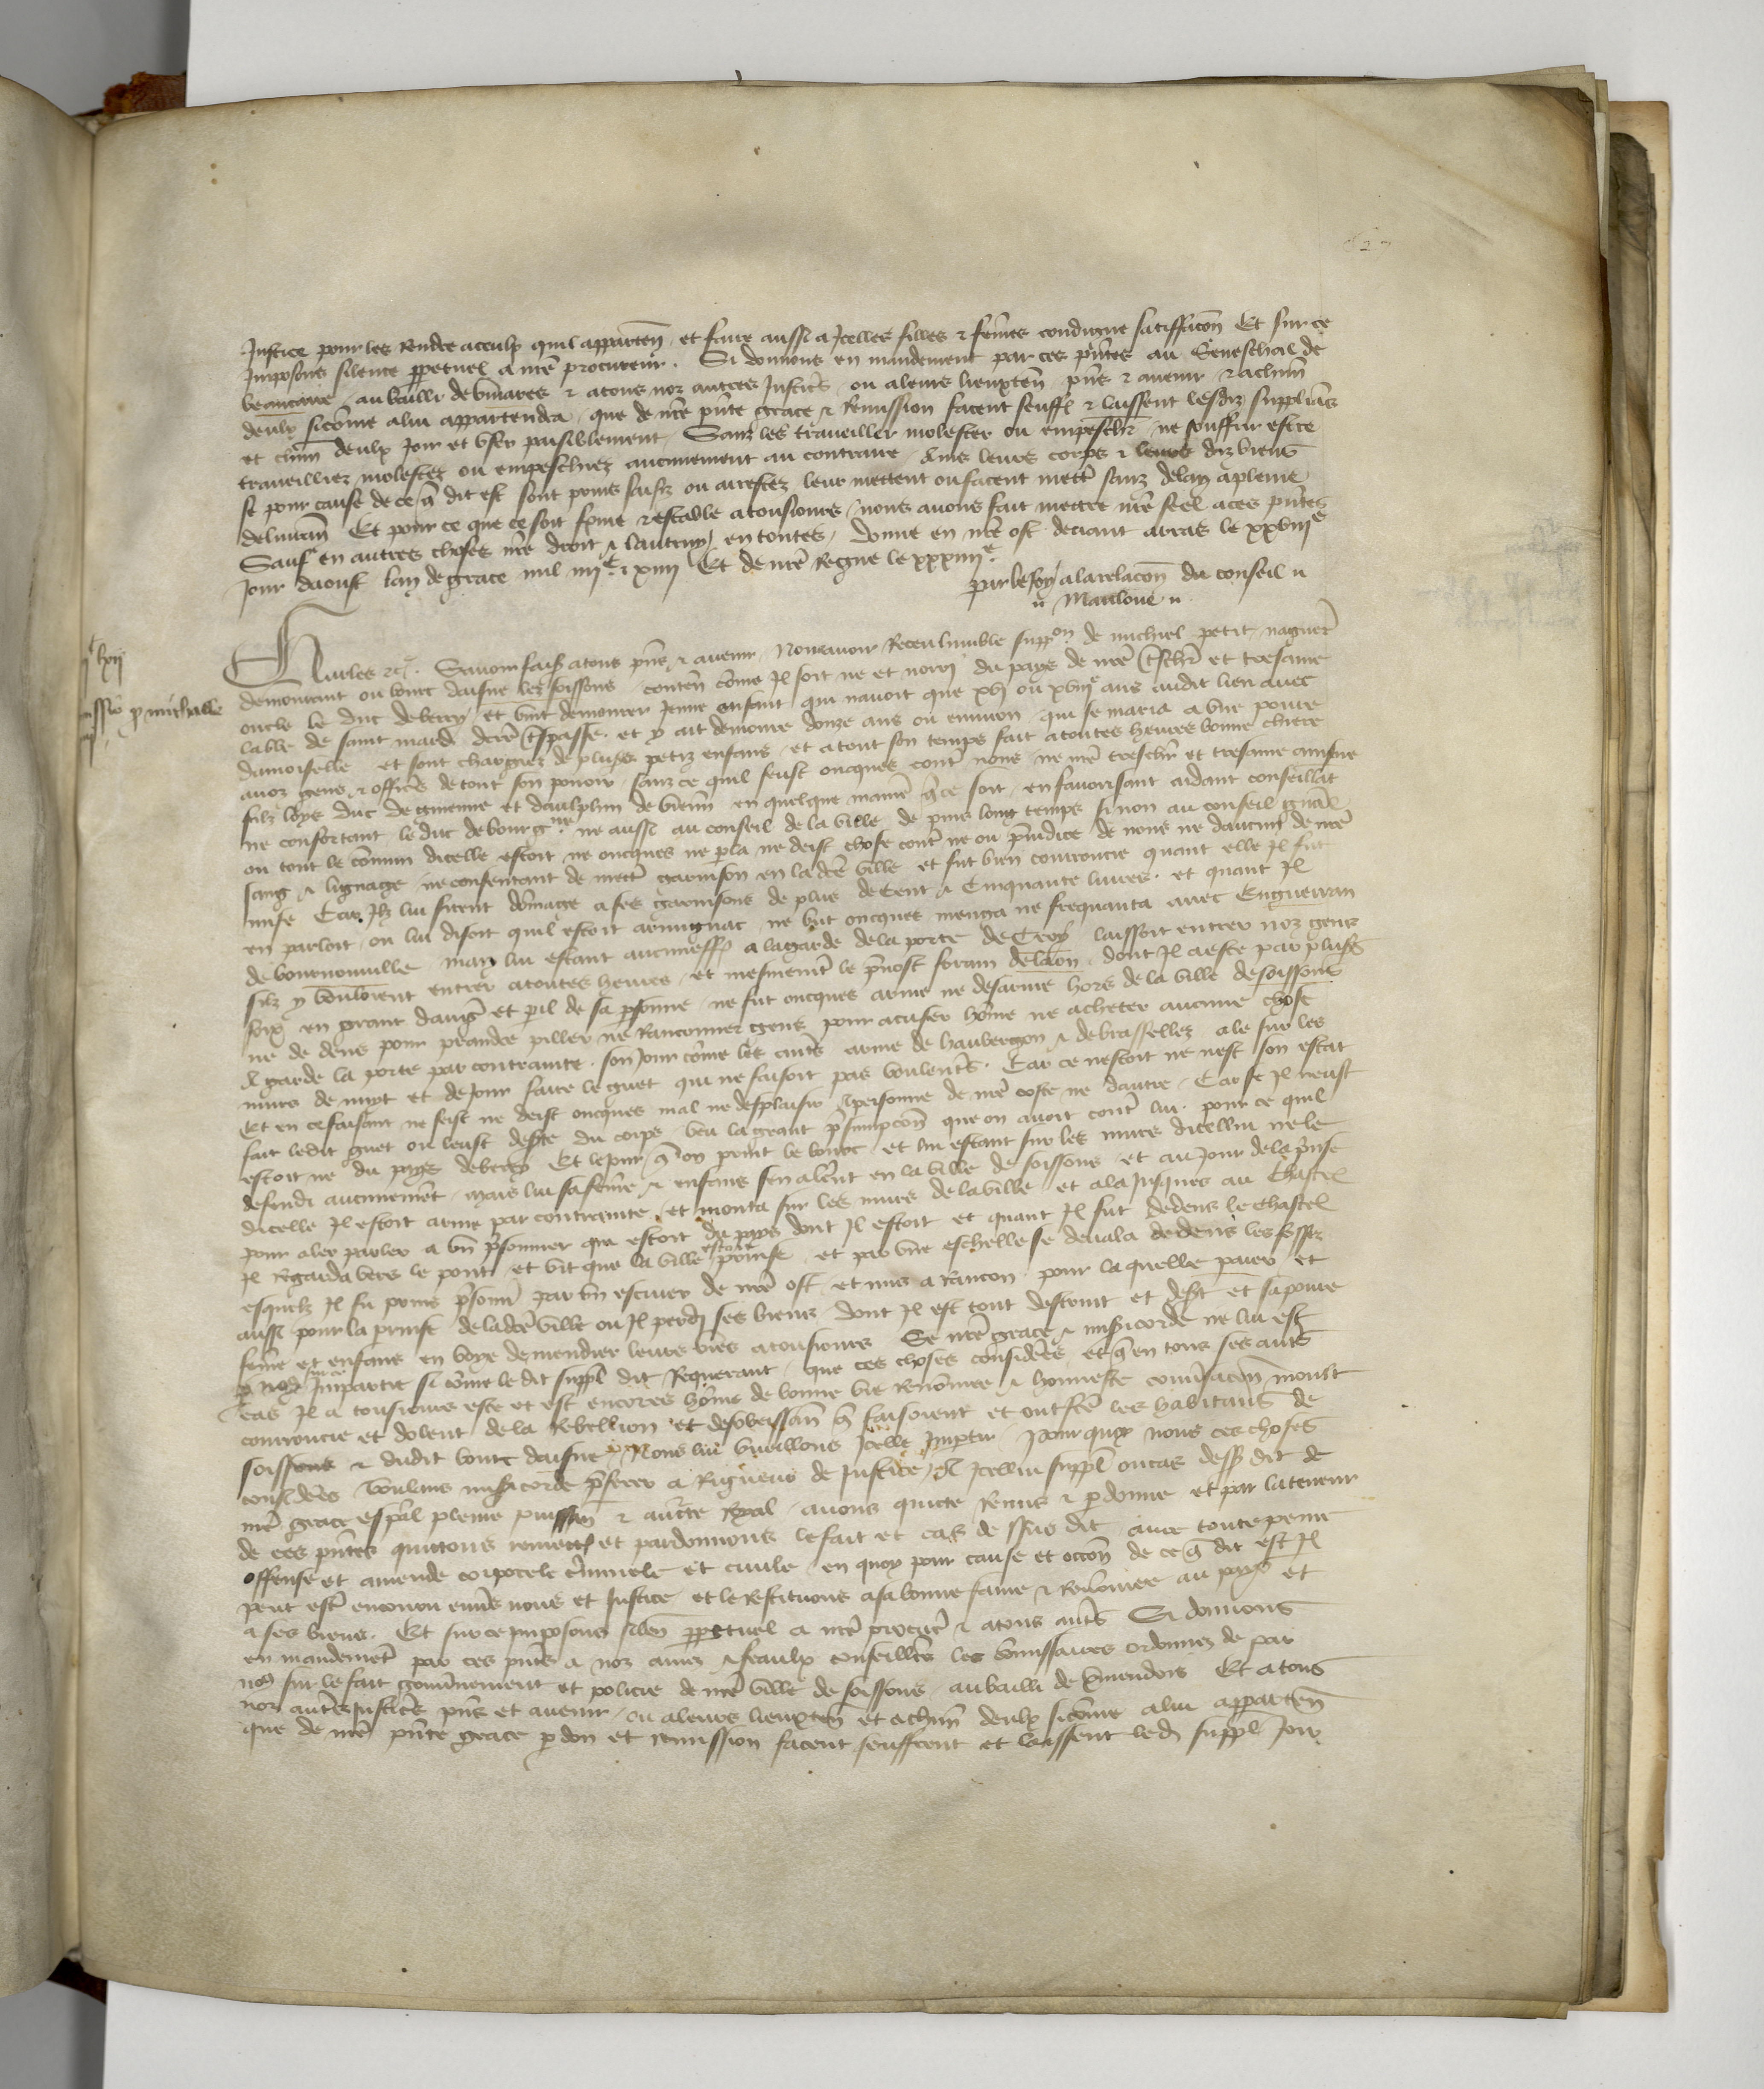 Justice pour les rendre a ceulx quil apparten̄. et faire aussi a Icelles filles ⁊ fem̄es condigne satiffac̄on Et sur ce
Imposons silence ꝑpetuel a nr̄e procureur. Si donnons en mandement par ces pn̄tes au Seneschal de
beaucaire au bailli de vmares ⁊ a tous noz autres Justic̄s ou a leurs lieuxten̄ pn̄s ⁊ auenir ⁊ achun̄
deulx sicōme a lui appartendra que de nr̄e pn̄te grace ⁊ Remission facent seuffr̄ ⁊ laissent lesdiz suppliās
et chūn deulx Joir et vser paisiblement Sanz les traueillier molester ou empeschr̄ ne souffrir estre
traueilliez molestez ou empeschiez aucunement au contraire Ains leurs corps ⁊ leurs diz biens
se pour cause de ce q̄ dit est sont prins saisiz ou arrestez leur mettent ou facent mettr̄ sanz delay a pleine
deliuran̄ Et pour ce que ce soit ferme ⁊ estable a tousiours nous auons fait mettre nr̄e seel a ces pn̄tes
Sauf en autres choses nr̄e droit ⁊ lautruy en toutes, Donne en nr̄e ost deuant arras le xxviij e
Jour daoust lan de grace mil iiij c ⁊ xiiij Et de nr̄e Regne le xxxiiij e
par le Roy a la relac̄on du conseil
Mauloue
Charles ⁊c̄. Sauoir fais̄ a tous pn̄s ⁊ auenir Nous auoir Receu lumble supp on de michiel petit nagueres
demourant ou bourc daisne lez soissons conten̄ cōme Il soit ne et norry du pays de nr̄e tresch̄r et tresame
oncle le duc de berry et vint demourer Jenne enfant qui nauoit que xvj ou xviij ans audit lieu auec
labbe de saint mard derr̄ t̄spasse et y ait demoure douze ans ou enuiron qui se maria a vne poure
damoiselle et sont chargiez de plus̄s petiz enfans et a tout son temps fait a toutes heures bonne chiere
a noz gens ⁊ offic̄s de tout son pouoir sanz ce quil feust oncques contr̄ nous ne nr̄e tresch̄r et tresame ainsne
filz loys duc de guienne et daulphin de vienn̄ en quelque manie᷑ q̄ ce soit en fauorisant aidant conseillāt
ne confortant le duc de bourg ne ne aussi au conseil de la ville de puis long temps si non au conseil gn̄al
ou tout le cōmun dicelle estoit ne oncques ne ꝑla ne deist chose contr̄ ne ou p̄iudice de nous ne daucun de nr̄e
sang ⁊ lignage ne consentant de mectr̄ garnison en la dc̄e ville et fut bien courroucie quant elle Il fut
mise Car Ilz lui firent dōmage a ses garnisons de plus de Cent ⁊ Cinquante liures. et quant Il
en parloit on lui disoit quil estoit armignac ne but oncques menga ne frequanta auec Enguerran
de bournonuille mais lui estant aucuneff̄ a la garde de la porte de Croy laissoit entrer noz gens
silz y vouloient entrer a toutes heures et mesmemēt le p̄uost foram de laon dont Il a este par plus̄s
foix en grant danḡ et ꝑil de sa ꝑsonne ne fut oncques arme ne desarme hors de la ville de soissons
ne de dens pour prandre piller ne Ranconner gens pour acuser hōme ne acheter aucune chose
Il garde la porte par contrainte son Jour cōme les aut̄s arme de haubergon ⁊ de brasselles ale sur les
murs de nuyt et de Jour faire le guet qui ne faisoit pas voulent̄s. Car ce nestoit ne nest son estat
Et en ce faisant ne feist ne deist oncques mal ne desplaisir a personne de nr̄e coste ne dautre. Car se Il neust
fait ledit guet on leust deste du corps veu la grant p̄sumpcōn que on auoit contr̄ lui. pour ce quil
estoit ne du pays de berry Et le Jour q̄ on print le bourc et lui estant sur les murs dicellui ne le
defendi aucunemēt mais lui sa fem̄e ⁊ enfans sen aler̄nt en la ville de soissons et au Jour de la p̄nse
dicelle Il estoit arme par contrainte et monta sur les murs de la ville et ala Jusques au chastel
pour aler parler a vn p̄sonnier qui estoit du pays dont Il estoit et quant Il fut dedens le chastel
Il Regarda vers le pont et vit que la ville estoit prinse et par vne eschelle se deuala dedens les fossez
esquelx Il fu prins p̄sonn̄ par vn escuier de nr̄e ost et mis a Rancon pour la quelle paier et
aussi pour la prinse de ladc̄e ville ou Il perdi ses biens dont Il est tout destruit et desꝑt et sa poure
fem̄e et enfans en voye de mendier leurs vies a tousiours Se nr̄e grace ⁊ mis̄icorde ne lui est
Impartie si cōme le dit suppl̄ dit Requerant que ces choses considēes et q̄ en tous ses aut̄s
cas Il a tousiours este et est encores hōme de bonne vie Renōmee ⁊ honneste conūsac̄on moult
courroucie et dolent de la Rebellion et desobeissan̄ q̄ faisoient et ont fc̄e les habitans de
soissons ⁊ dudit bourc daisne Nous lui vueillons Icelle Imptir Pour quoy nous ces choses
considēes voulans mis̄icorde p̄ferer a Rigueur de Justice A Icellui suppl̄ ou cas dess̄ dit de
nr̄e grace esp̄al pleine puissan̄ ⁊ auct̄te Royal auons quicte Remis ⁊ ꝑdonne et par la teneur
de ces pn̄tes quictons remectōs et pardonnons le fait et cas de ssus dit auec toute peine
offense et amende corporele c̄minele et ciuile en quoy pour cause et occōn de ce q̄ dit est Il
peut est̄r encouru enuēs nous et Justice et le Restituons a sa bonne fame ⁊ Renōmee au pays et
a ses biens. Et sur ce Imposons silen̄ ꝑpetuel a nr̄e procur̄ ⁊ a tous aut̄s Si donnons
en mandemēt par ces pn̄tes a noz amez ⁊ feaulx conseillēs les cōmissaires ordonnez de par
nous sur le fait gouūnement et policie de nr̄e ville de soissons au bailli de v̄mendois Et a tous
noz aut̄s Justic̄s pn̄s et auenir ou a leurs lieuxten̄ et a chun̄ deulx sicōme a lui apparten̄
que de nr̄e pn̄te grace ꝑdon et remission facent seuffrent et laissent led̄ suppl̄ Joir